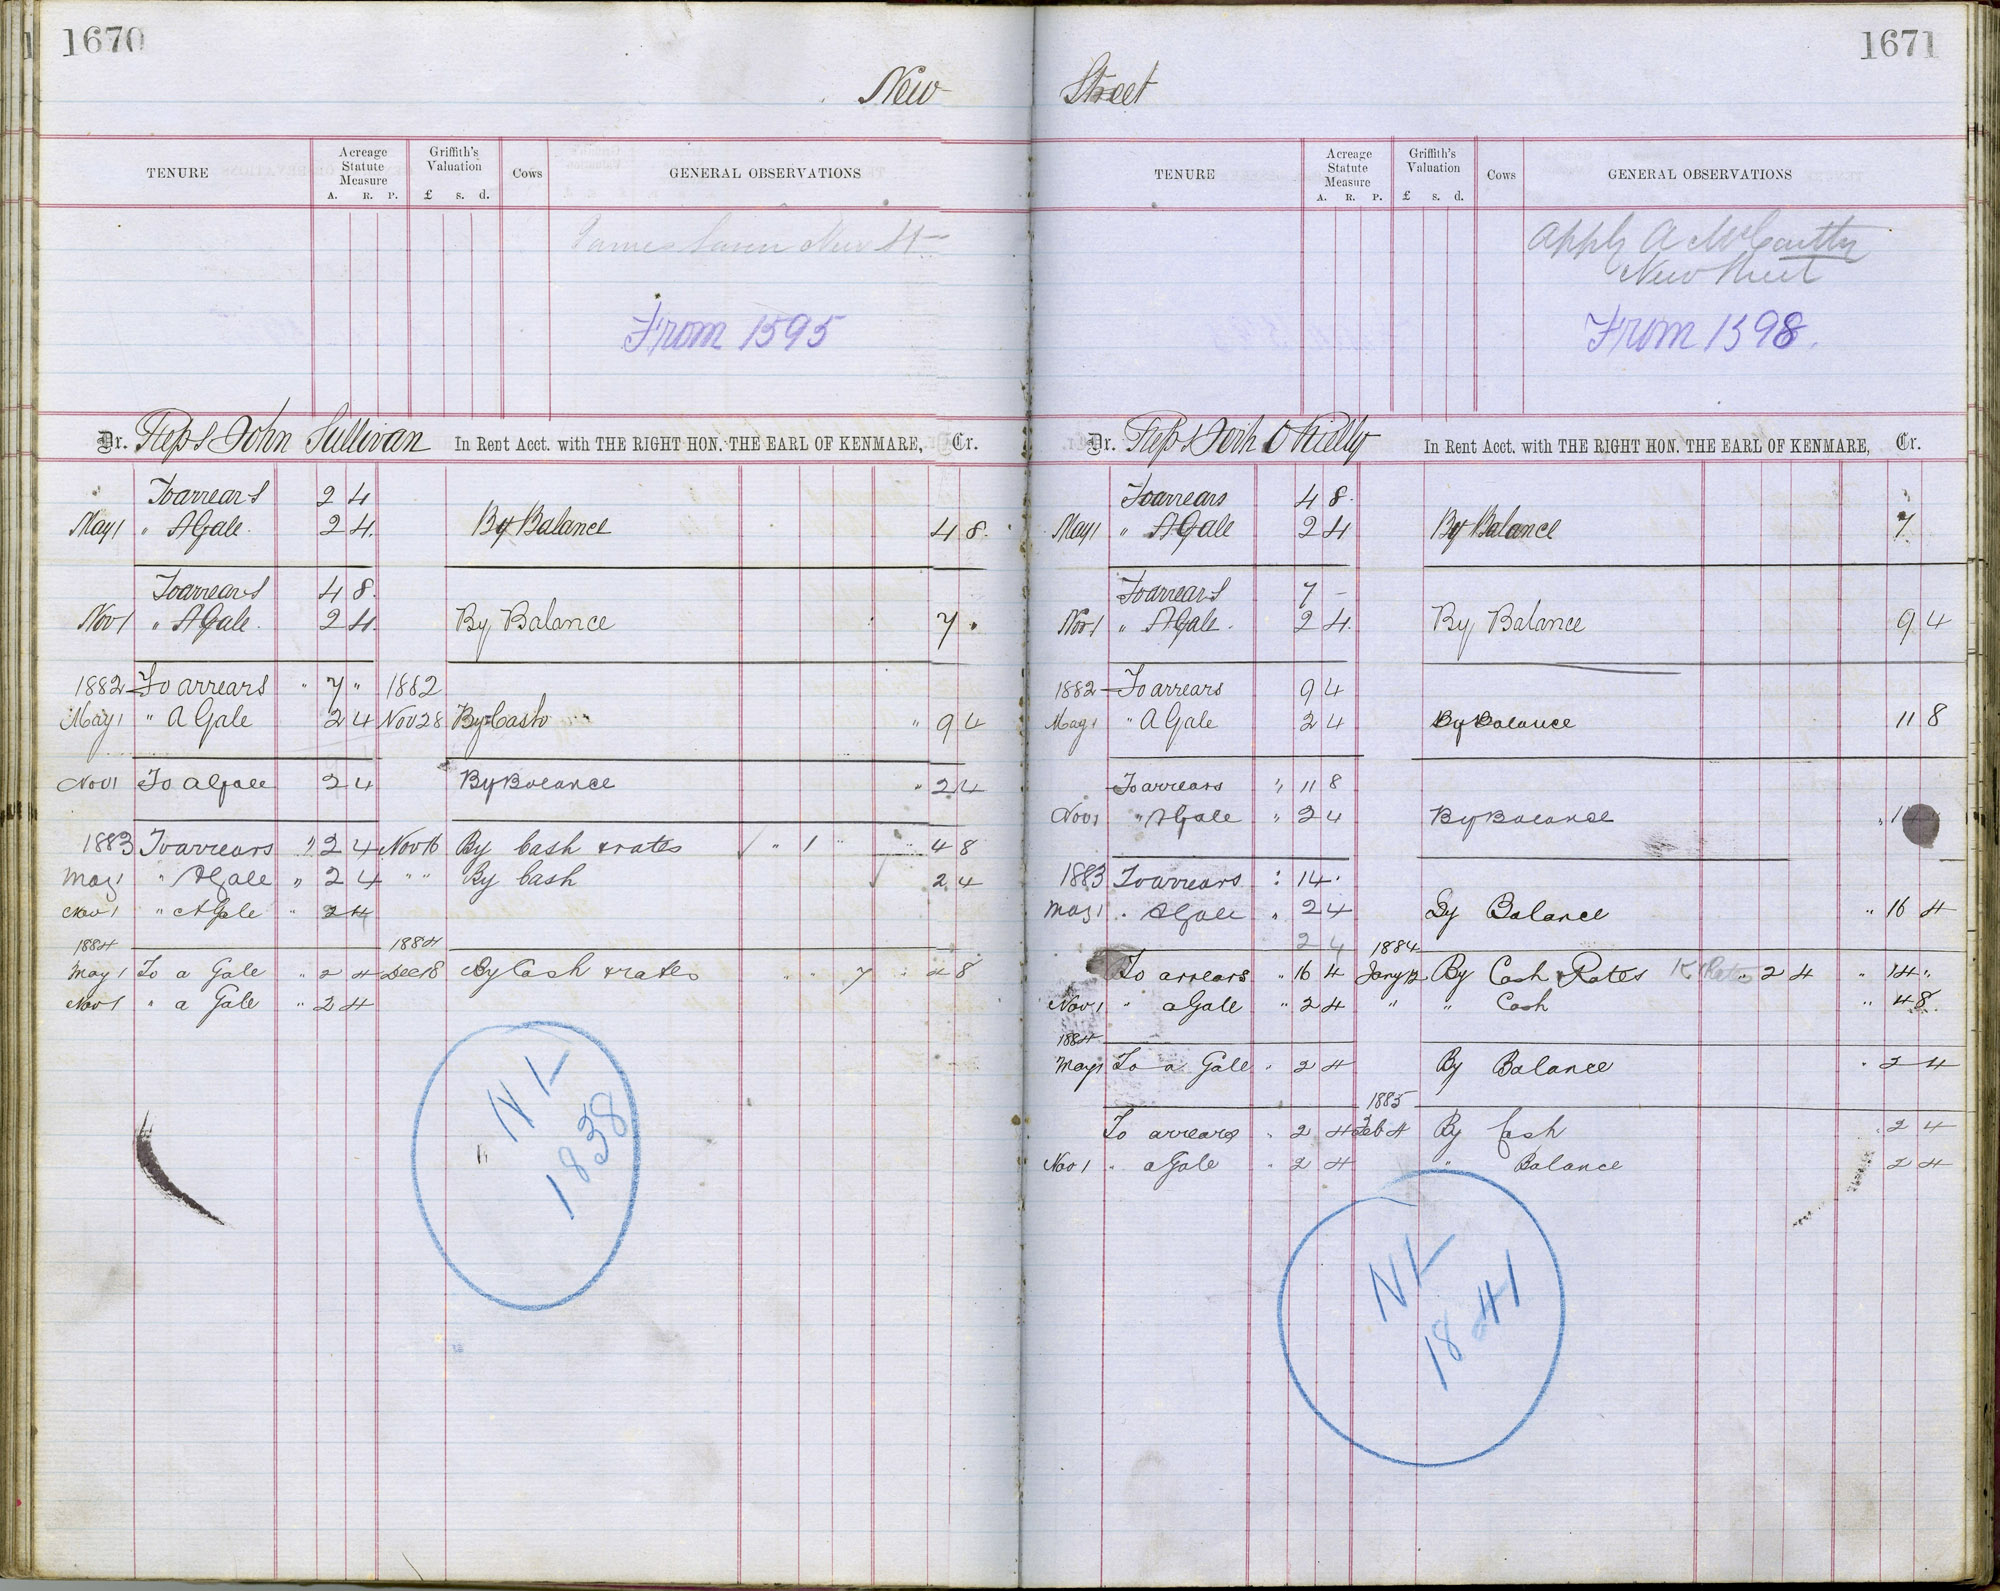 1670
New
TENURE
Acreage Statute Measure
A. R. P.
Griffith's Valuation
£ s. d.
Cows
GENERAL OBSERVATIONS
New St
From 1595
Dr. Reps John Sullivan In Rent Acct. with THE RIGHT HON. THE EARL OF KENMARE, Cr.
To arrears 2 4
May 1 " A Gale 2 4 By Balance 4 8
To arrears 4 8
Nov 1 " A Gale 2 4 By Balance 7 "
1882 To arrears " 7 " 1882
May 1 " A Gale 2 4 Nov 28 By Cash " 9 4
Nov 1 To A Gale 2 4 By Balance " 2 4
1883 To arrears " 2 4 Nov 16 By Cash & rates " 1 " " 4 8
May 1 " A Gale " 2 4 " " By Cash 2 4
Nov 1 " A Gale " 2 4
1884 1884
May 1 To a Gale " 2 4 Dec 18 By Cash & rates " " 7 " 4 8
Nov 1 " a Gale " 2 4
NL
1838
1671
Street
TENURE
Acreage Statute Measure
A. R. P.
Griffith's Valuation
£ s. d.
Cows
GENERAL OBSERVATIONS
Apply A McCarthy
New Street
From 1598.
Dr. Reps Jerh O Rielly In Rent Acct. with THE RIGHT HON. THE EARL OF KENMARE, Cr.
To arrears 4 8
May 1 " A Gale 2 4 By Balance 7
To arrears 7 -
Nov 1 " A Gale 2 4 By Balance 9 4
1882 To arrears 9 4
May 1 " A Gale 2 4 By Balance 11 8
To arrears " 11 8
Nov 1 " A Gale " 2 4 By Balance
1883 To arrears : 14 "
May 1 " A Gale " 2 4 By Balance " 16 4
2 4 1884
To arrears " 16 4 Jany 12 By Cash & Rates 2 4 " 14 "
Nov 1 " a Gale " 2 4 " " Cash " 4 8
1884
May 1 To a Gale " 2 4 By Balance " 2 4
1885
To arrears " 2 4 Feb 4 By Cash " 2 4
Nov 1 " a Gale " 2 4 " Balance 2 4
NL
1841